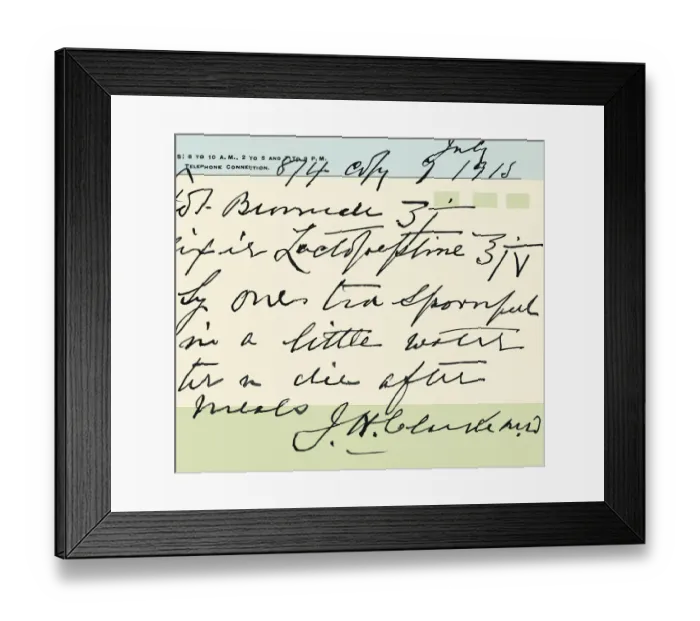 S: 8 TO 10 A.M., 2 TO 5 AND 7 TO 9 P.M.
TELEPHONE CONNECTION. 874 copy July 9 1915
Pot. Bromide ʒi
ixir Lactopeptine ʒiv
Sy one tea spoonful
in a little water
ter n die after
meals
J. H. Clarke M.D